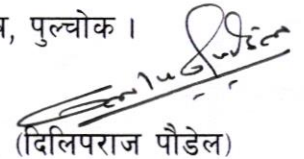 , पुल्चोक ।
(दिलिपराज पौडेल)